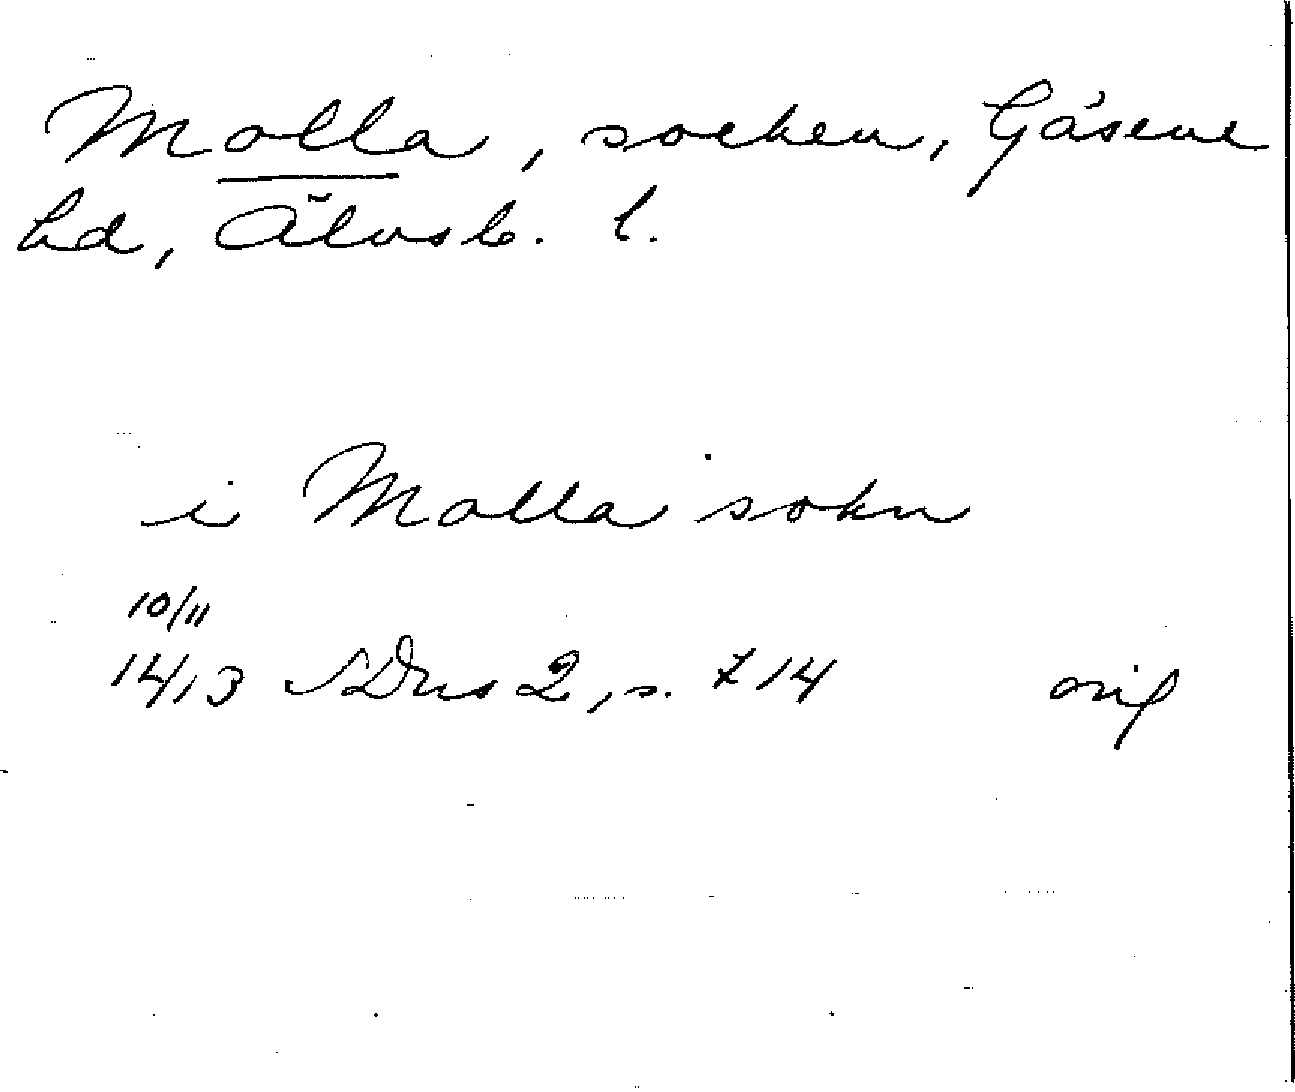 Molla, socken, Gäsene
hd, Älvsb. l.
i Molla sokn
10/11
1413 SDns 2, s. 714 orig